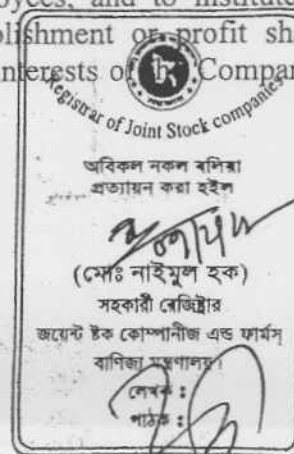 oyees, and to institute
blishment or profit sh
nterests of Compan
Registrar of Joint Stock companies
অবিকল নকল বলিয়া
প্রত্যায়িন করা হইল
(মোঃ নাইমুল হক)
সহকারী রেজিষ্ট্রার
জয়েন্ট ষ্টক কোম্পানীজ এন্ড ফার্মস্
বাণিজ্য মন্ত্রণালয়।
লেখক :
পাঠক :